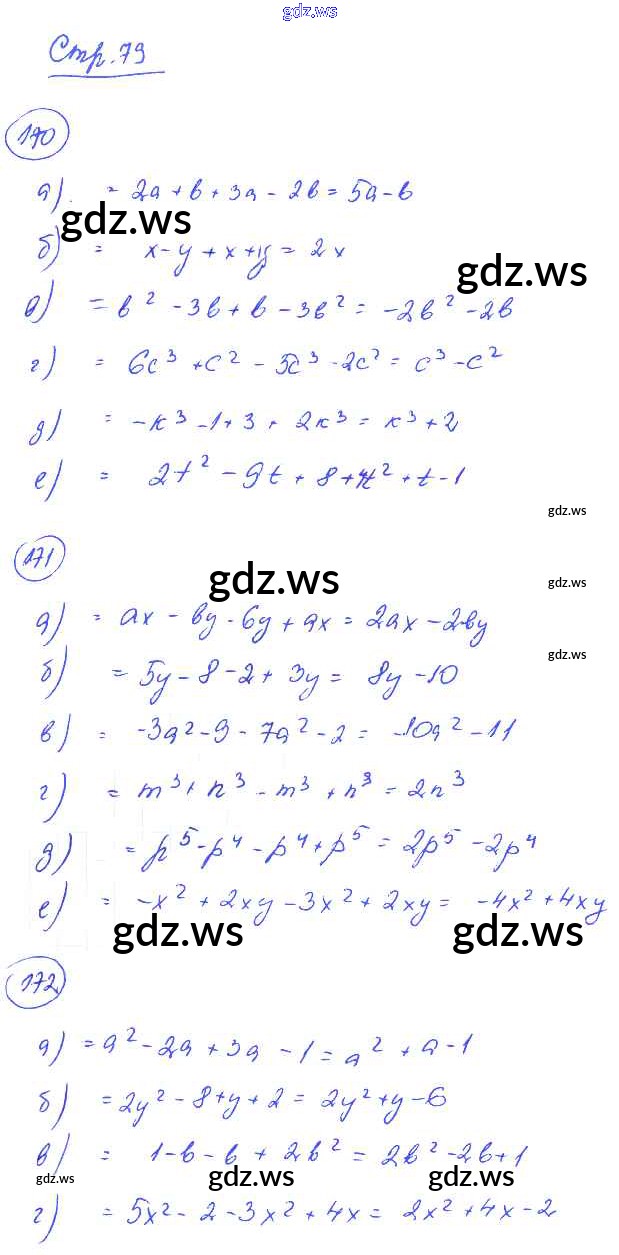 gdz.ws
Стр. 79
170
а) = 2a + b + 3a - 2b = 5a - b
gdz.ws
б) = x - y + x + y = 2x
gdz.ws
в) = b² - 3b + b - 3b² = -2b² - 2b
г) = 6c³ + c² - 5c³ - 2c² = c³ - c²
д) = -k³ - 1 + 3 + 2k³ = k³ + 2
е) = 2t² - 9t + 8 + t² + t - 1
gdz.ws
171
gdz.ws
gdz.ws
а) = ax - by - by + ax = 2ax - 2by
gdz.ws
б) = 5y - 8 - 2 + 3y = 8y - 10
в) = -3a² - 9 - 7a² - 2 = -10a² - 11
г) = m³ + n³ - m³ + n³ = 2n³
д) = p⁵ - p⁴ - p⁴ + p⁵ = 2p⁵ - 2p⁴
е) = -x² + 2xy - 3x² + 2xy = -4x² + 4xy
gdz.ws gdz.ws
172
а) = a² - 2a + 3a - 1 = a² + a - 1
б) = 2y² - 8 + y + 2 = 2y² + y - 6
в) = 1 - b - b + 2b² = 2b² - 2b + 1
gdz.ws gdz.ws gdz.ws
г) = 5x² - 2 - 3x² + 4x = 2x² + 4x - 2